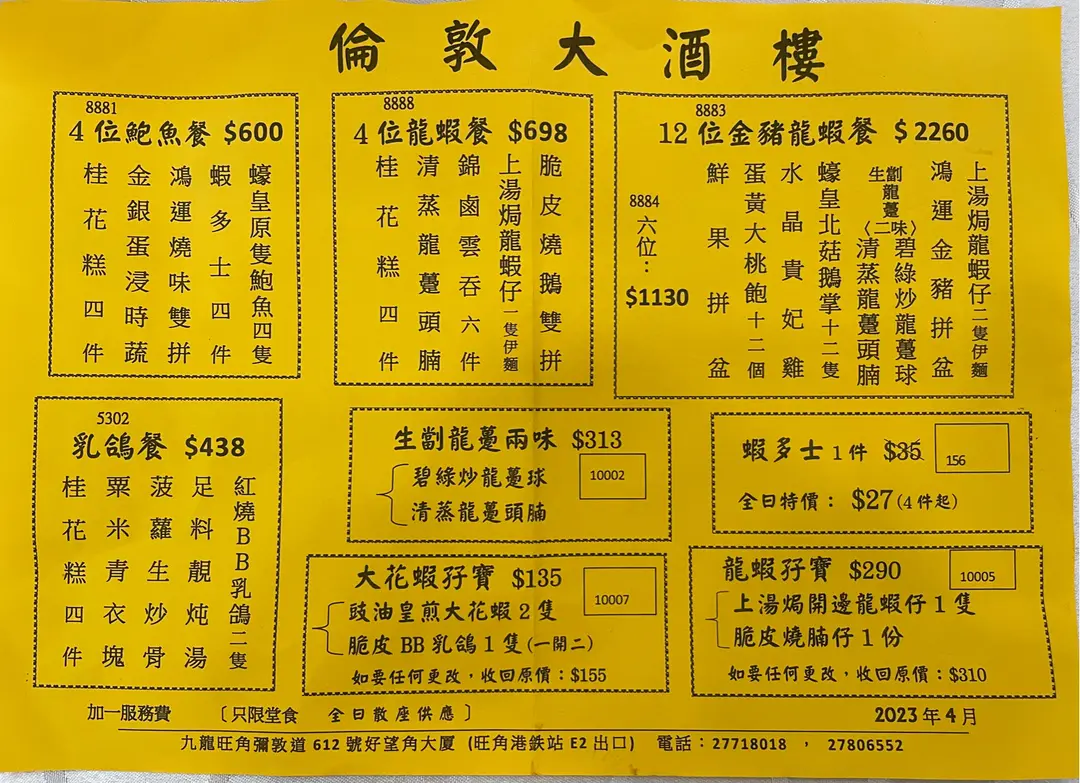 倫敦大酒樓
8881
4位鮑魚餐 $600
蠔皇原隻鮑魚四隻
蝦多士四件
鴻運燒味雙拼
金銀蛋浸時蔬
桂花糕四件
8888
4位龍蝦餐 $698
脆皮燒鵝雙拼
上湯焗龍蝦仔一隻伊麵
錦鹵雲吞六件
清蒸龍躉頭腩
桂花糕四件
8883
12位金豬龍蝦餐 $2260
上湯焗龍蝦仔二隻伊麵
鴻運金豬拼盆
生劏龍躉〈二味〉
碧綠炒龍躉球
清蒸龍躉頭腩
蠔皇北菇鵝掌十二隻
水晶貴妃雞
蛋黃大桃飽十二個
鮮果拼盆
8884
六位：
$1130
5302
乳鴿餐 $438
紅燒BB乳鴿二隻
足料靚炖湯
菠蘿生炒骨
粟米青衣塊
桂花糕四件
生劏龍躉兩味 $313
碧綠炒龍躉球
10002
清蒸龍躉頭腩
蝦多士1件 $35
156
全日特價：$27(4件起)
大花蝦孖寶 $135
10007
豉油皇煎大花蝦2隻
脆皮BB乳鴿1隻(一開二)
如要任何更改，收回原價：$155
龍蝦孖寶 $290
10005
上湯焗開邊龍蝦仔1隻
脆皮燒腩仔1份
如要任何更改，收回原價：$310
加一服務費 〔只限堂食 全日散座供應〕 2023年4月
九龍旺角彌敦道612號好望角大厦 (旺角港鉄站E2出口) 電話：27718018 ， 27806552